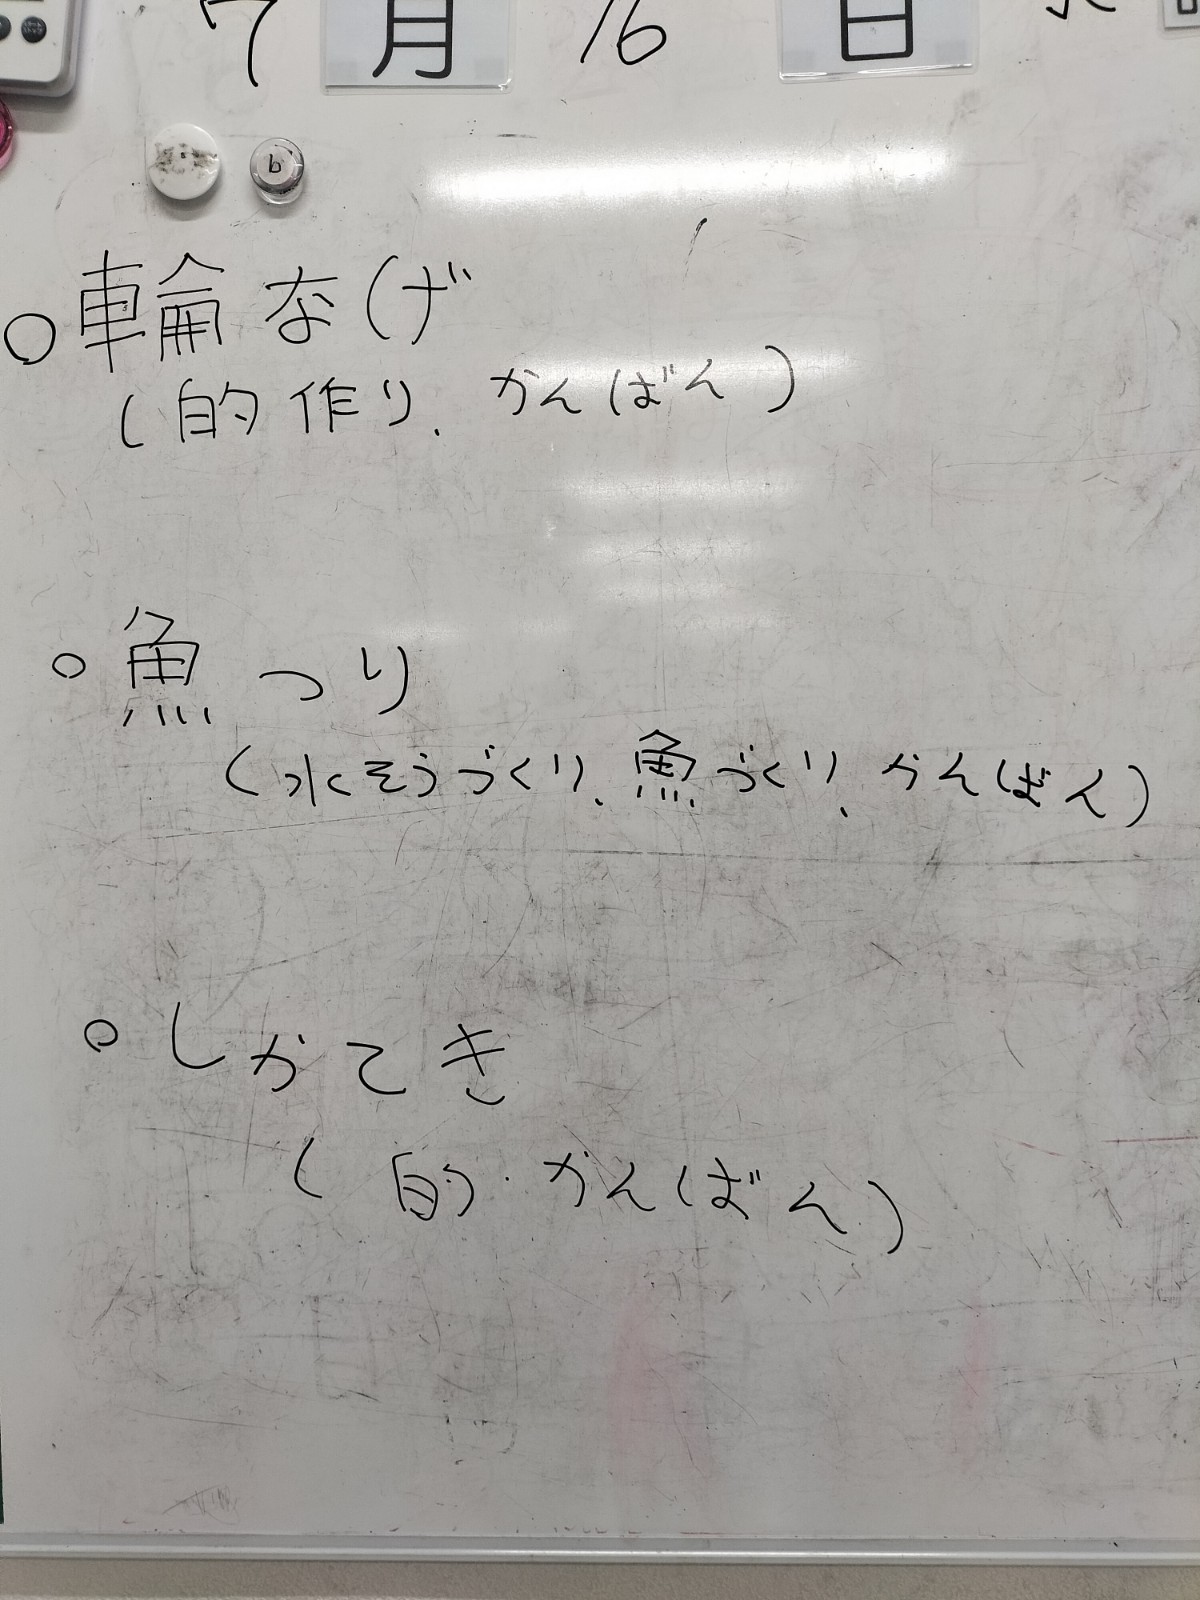 7月16日
b
○輪なげ
(的作り、かんばん)
○魚つり
(水そうづくり、魚づくり、かんばん)
○しかてき
(的・かんばん)